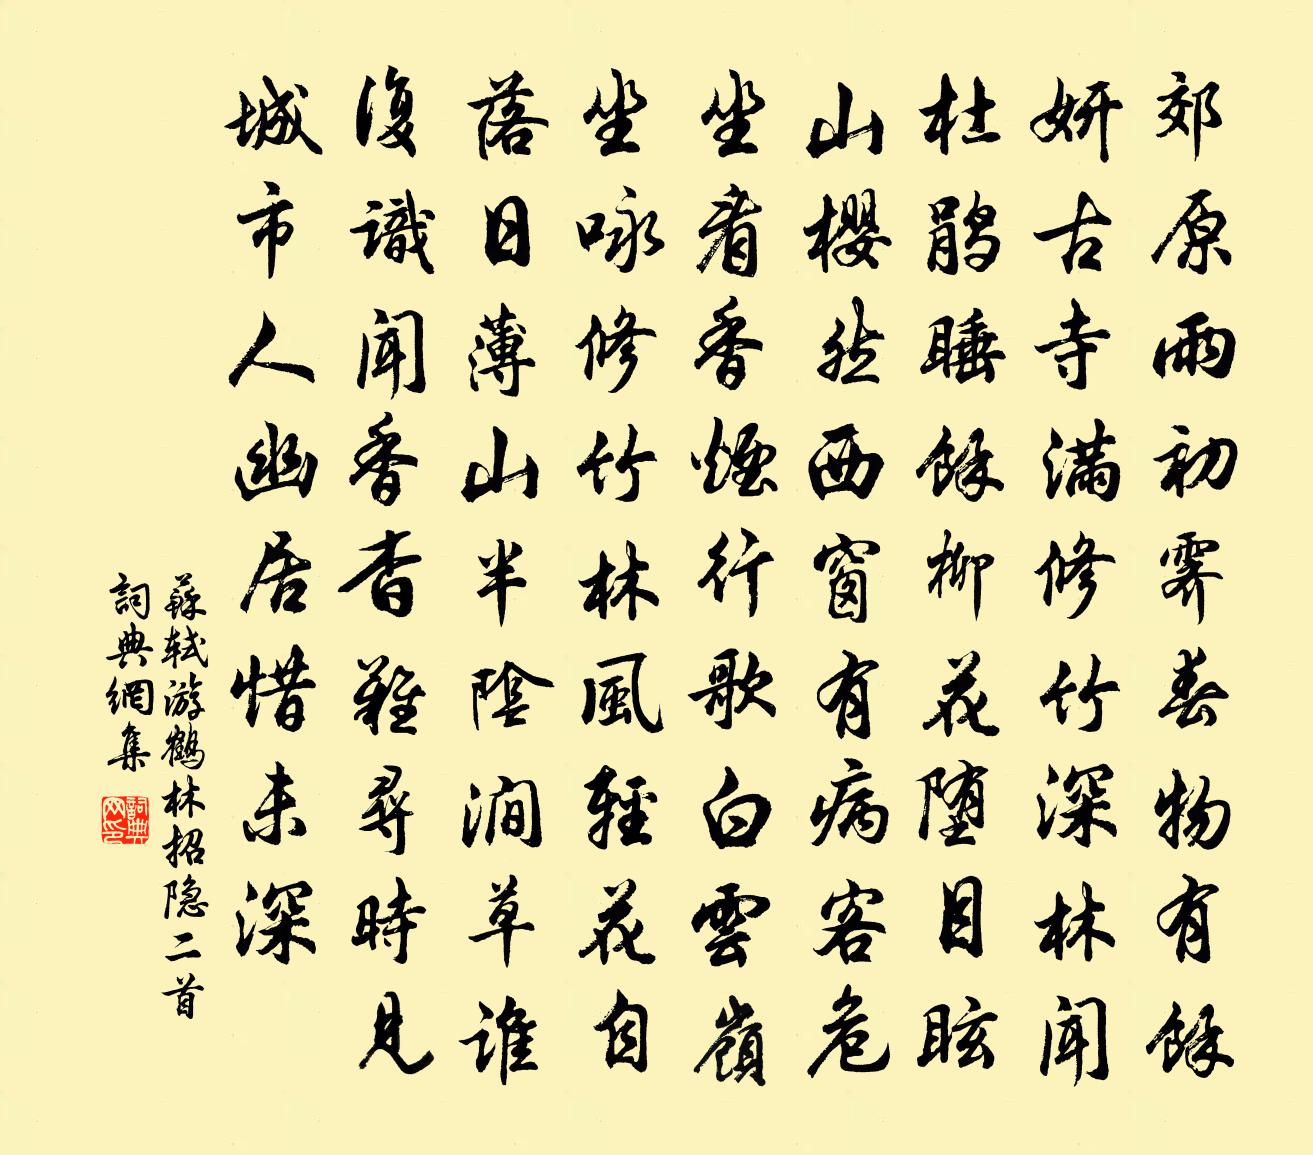 郊原雨初霽春物有餘
妍古寺滿修竹深林聞
杜鹃睡餘柳花堕目眩
山櫻然西窗有病客危
坐看香煙行歌白雲嶺
坐咏修竹林風輕花自
落日薄山半陰澗草誰
復識聞香杳難尋時見
城市人幽居惜未深
蘇軾游鶴林招隐二首
詞典網集
詞典网印